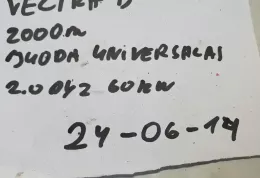 VECTRA B
2000m
JUODA UNIVERSALAS
2.0 60kw
24-06-14